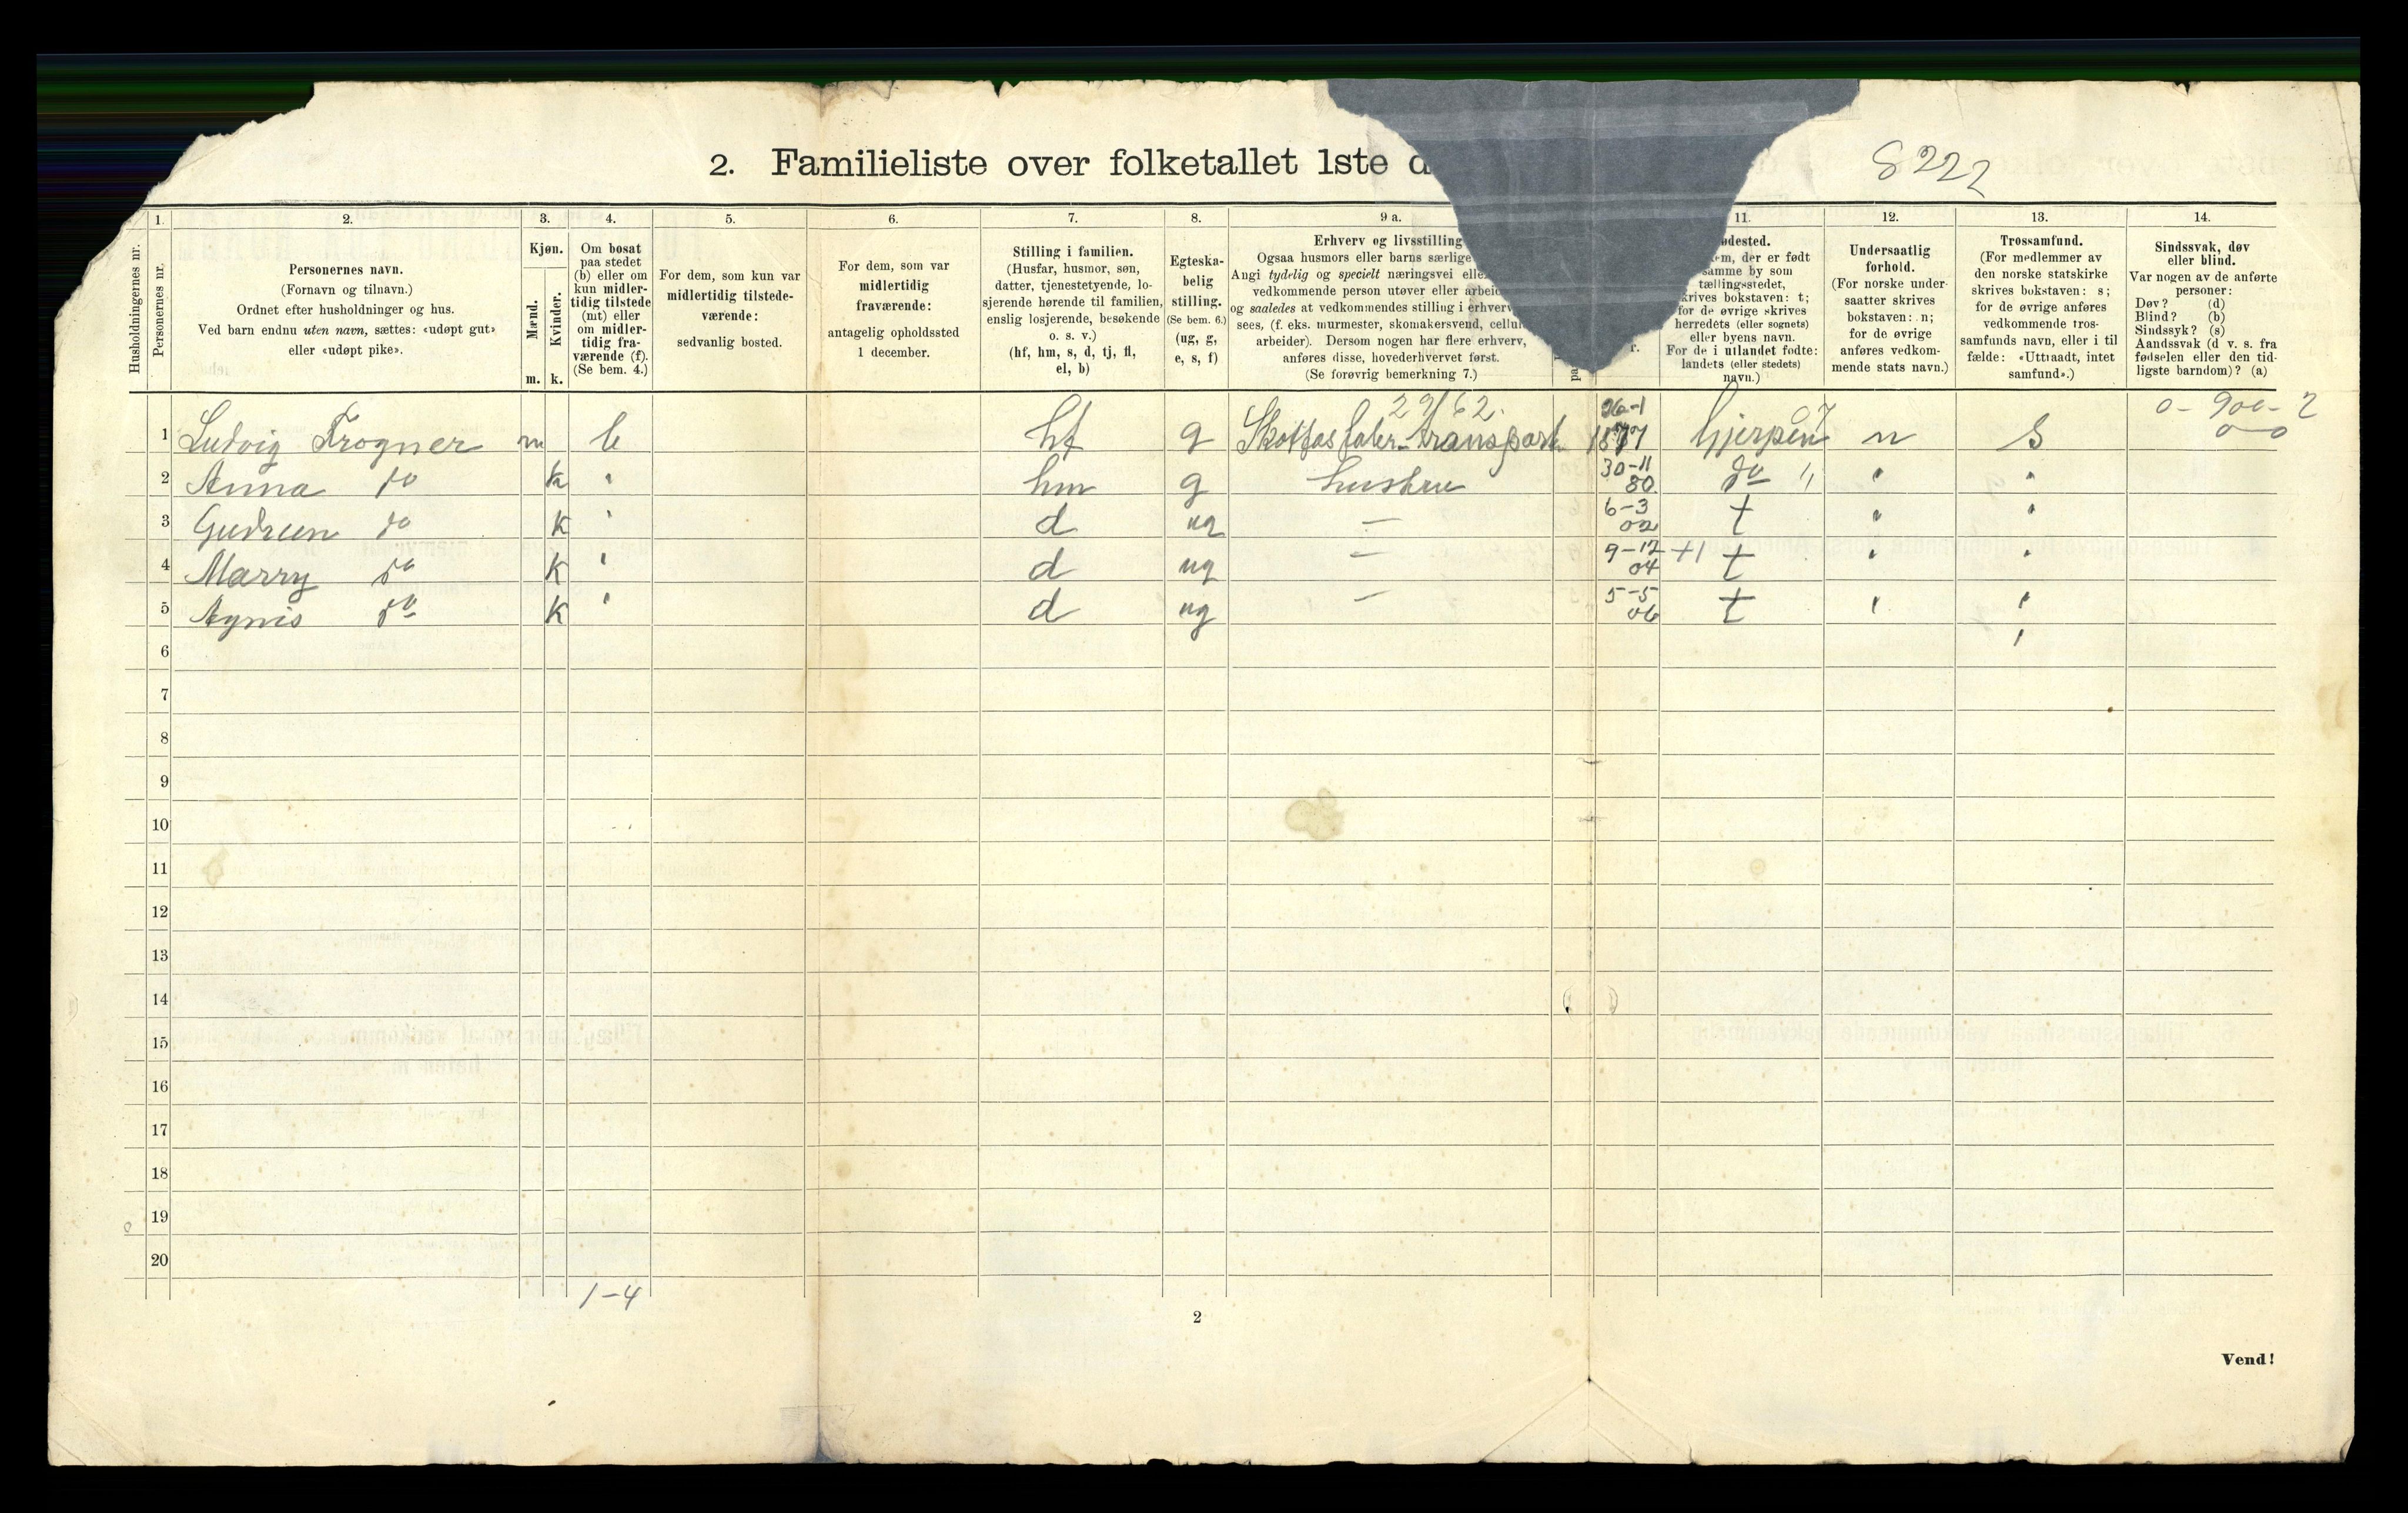 2. Familieliste over folketallet 1ste d
8222
1. 2. 3. 4. 5. 6. 7. 8. 9 a. 11. 12. 13. 14.
Husholdningernes nr.
Personernes nr.
Personernes navn.
(Fornavn og tilnavn.)
Ordnet efter husholdninger og hus.
Ved barn endnu uten navn, sættes: «udøpt gut»
eller «udøpt pike».
Kjøn.
Mænd.
Kvinder.
m. k.
Om bosat
paa stedet
(b) eller om
kun midler-
tidig tilstede
(mt) eller
om midler-
tidig fra-
værende (f).
(Se bem. 4.)
For dem, som kun var
midlertidig tilstede-
værende:
sedvanlig bosted.
For dem, som var
midlertidig
fraværende:
antagelig opholdssted
1 december.
Stilling i familien.
(Husfar, husmor, søn,
datter, tjenestetyende, lo-
sjerende hørende til familien,
enslig losjerende, besøkende
o. s. v.)
(hf, hm, s, d, tj, fl,
el, b)
Egteska-
belig
stilling.
(Se bem. 6.)
(ug, g,
e, s, f)
Erhverv og livsstilling
Ogsaa husmors eller barns særlige
Angi tydelig og specielt næringsvei elle
vedkommende person utøver eller arbeid
og saaledes at vedkommendes stilling i erhverv
sees, (f. eks. murmester, skomakersvend, cellul
arbeider). Dersom nogen har flere erhverv,
anføres disse, hovederhvervet først.
(Se forøvrig bemerkning 7.)
pa
r.
ødested.
em, der er født
samme by som
tællingsstedet,
krives bokstaven: t;
for de øvrige skrives
herredets (eller sognets)
eller byens navn.
For de i utlandet fødte:
landets (eller stedets)
navn.)
Undersaatlig
forhold.
(For norske under-
saatter skrives
bokstaven: n;
for de øvrige
anføres vedkom-
mende stats navn.)
Trossamfund.
(For medlemmer av
den norske statskirke
skrives bokstaven: s;
for de øvrige anføres
vedkommende tros-
samfunds navn, eller i til
fælde: «Uttraadt, intet
samfund».)
Sindssvak, døv
eller blind.
Var nogen av de anførte
personer:
Døv? (d)
Blind? (b)
Sindssyk? (s)
Aandssvak (d v. s. fra
fødselen eller den tid-
ligste barndom)? (a)
29/62. 26-1 07 0-900-2
1 Ludvig Trogner m b hf g 1877 Gjerpen n S 0-0
2 Anna do k " hm g hustru 30-11 80 do " " "
3 Gudrun do k " d ug — 6-3 02 t " "
4 Marry do k " d ug — 9-12 04 +1 t " "
5 Agnis do k " d ug — 5-5 06 t " "
6 "
7
8
9
10
11
12
13
14
15
16
17
18
19
20
1-4
2
Vend!